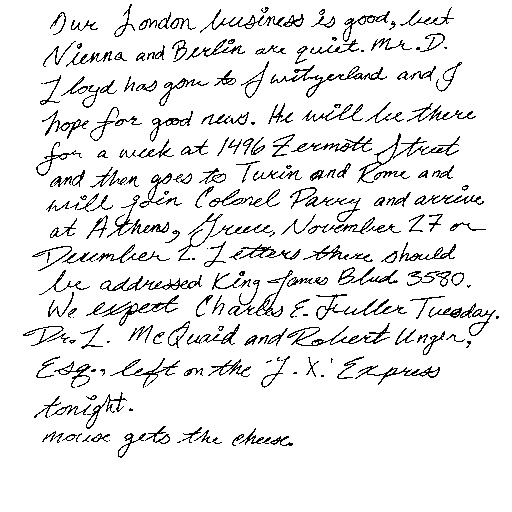 Our London business is good, but
Vienna and Berlin are quiet. Mr. D.
Lloyd has gone to Switzerland and I
hope for good news. He will be there
for a week at 1496 Zermott Street
and then goes to Turin and Rome and
will join Colonel Parry and arrive
at Athens, Greece, November 27 or
December 2. Letters there should
be addressed King James Blvd. 3580.
We expect Charles E. Fuller Tuesday.
Dr. L. McQuaid and Robert Unger,
Esq., left on the 'Y. X.' Express
tonight.
mouse gets the cheese.